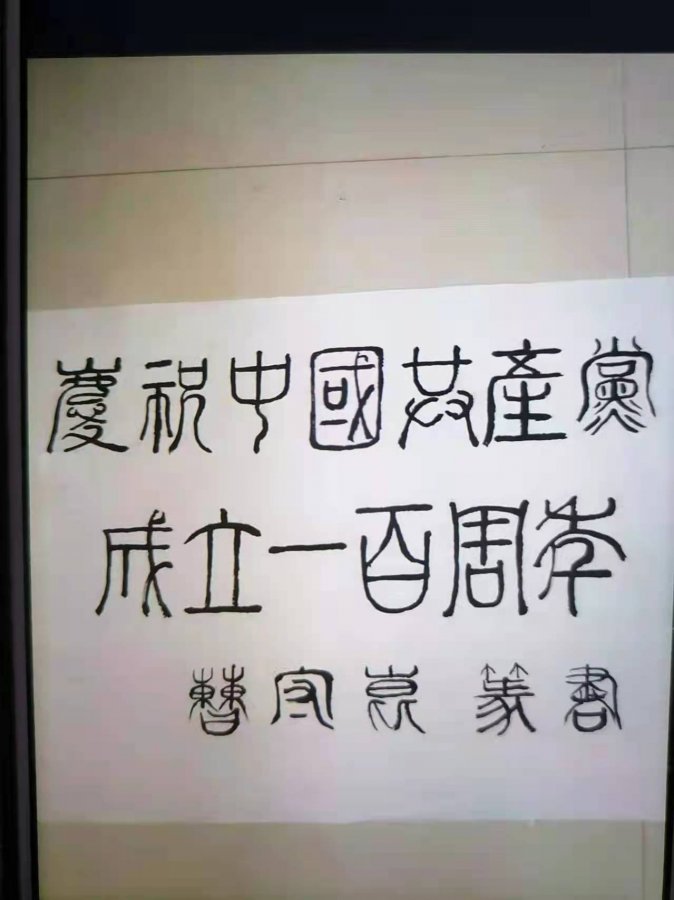 慶祝中國共產黨
成立一百周年
曹 篆書